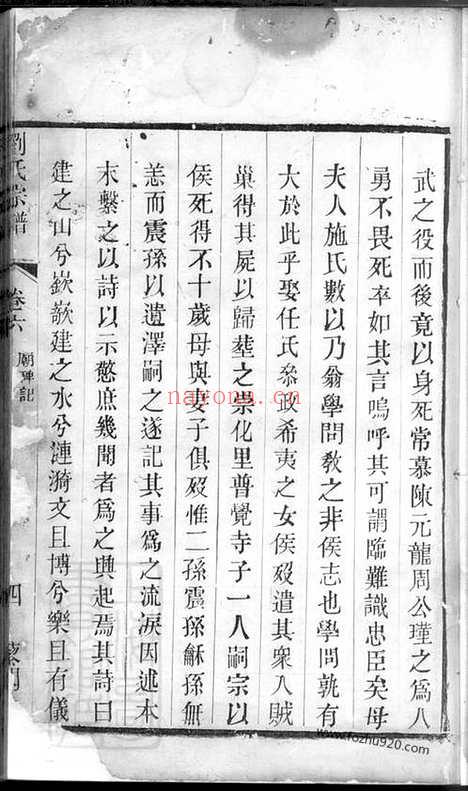 武之役而後竟以身死常慕陳元龍周公瑾之爲人
勇不畏死卒如其言嗚呼其可謂臨難識忠臣矣母
夫人施氏數以乃翁學問敎之非侯志也學問孰有
大於此乎娶任氏叅政希夷之女侯歿遣其衆入賊
巢得其屍以歸塟之崇化里普覺寺子一人嗣宗以
侯死得不十歲母與妻子俱歿惟二孫震孫穌孫無
恙而震孫以遺澤嗣之遂記其事爲之流淚因述本
末繫之以詩以示懲庶幾聞者爲之興起焉其詩曰
建之山兮嶔嶔建之水兮漣漪文且博兮樂且有儀
劉氏宗譜
卷六
廟碑記
四
nayona.cn
www.fozhu920.com